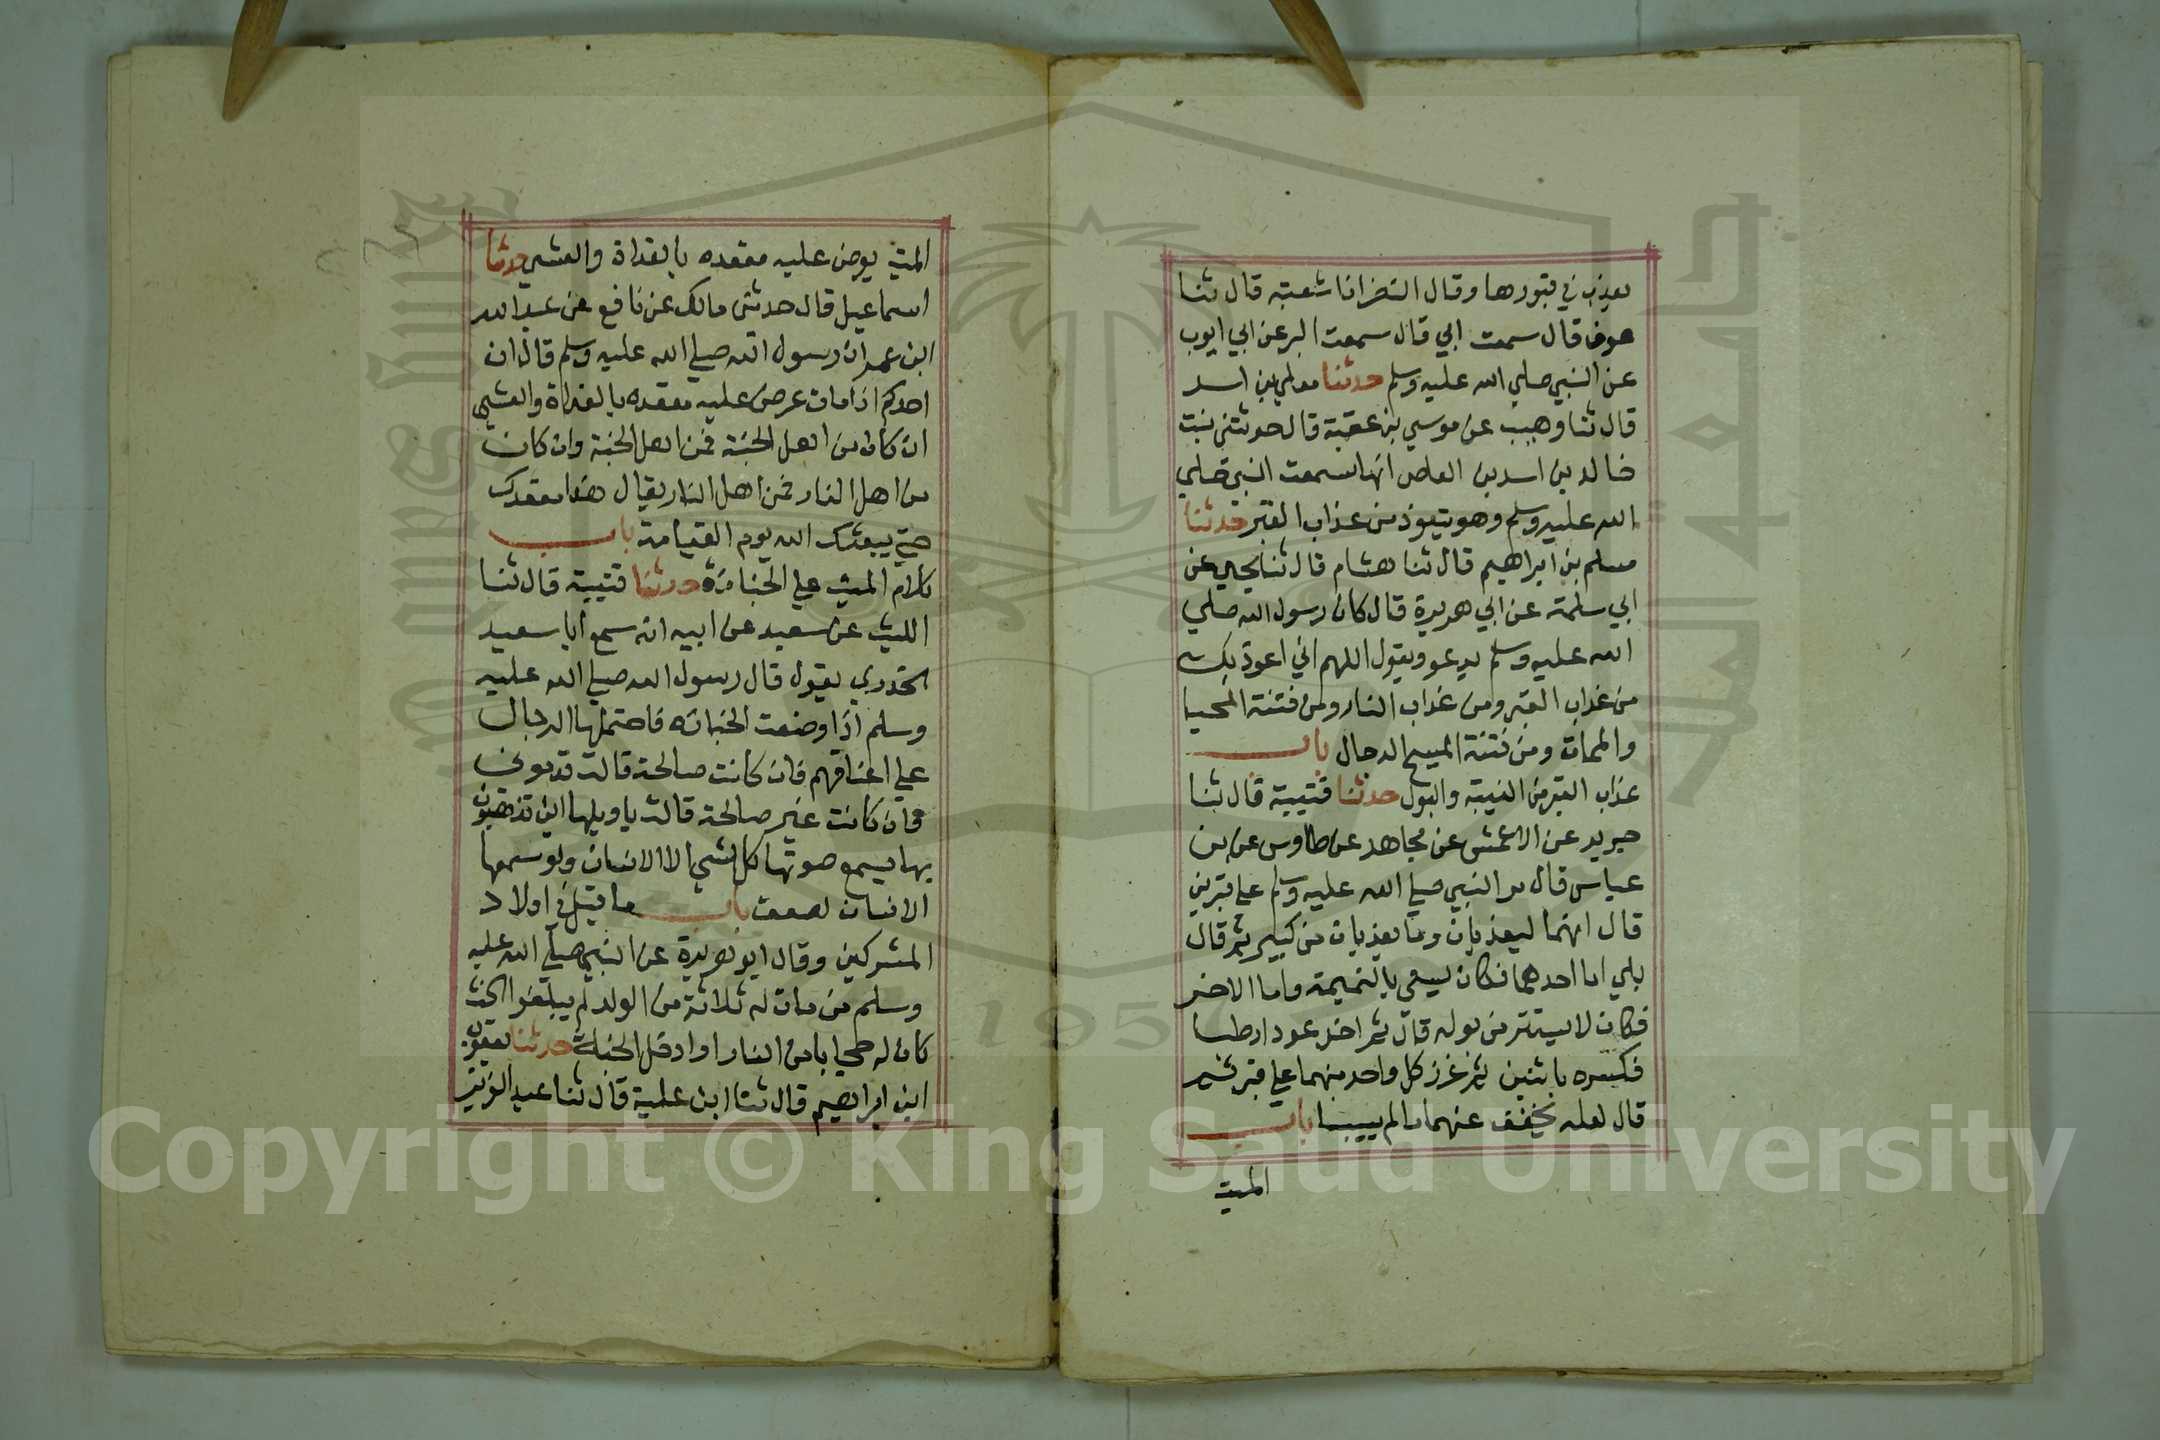 يعذب في قبورها وقال النضر انا شعبة قال ثنا
عون قال سمعت ابي قال سمعت البر عن ابي ايوب
عن النبي صلي الله عليه وسلم حدثنا معلي بن اسد
قال ثنا وهيب عن موسي بن عقبة قال حدثتني بنت
خالد بن اسد بن العاص انها سمعت النبي صلي
الله عليه وسلم وهو يتعوذ من عذاب القبر حدثنا
مسلم بن ابراهيم قال ثنا هشام قال ثنا يحيي عن
ابي سلمة عن ابي هريرة قال كان رسول الله صلي
الله عليه وسلم يدعو ويقول اللهم اني اعوذ بك
من عذاب القبر ومن عذاب النار ومن فتنة المحيا
والممات ومن فتنة المسيح الدجال باب
عذاب القبر من الغيبة والبول حدثنا قتيبة قال ثنا
جريد عن الاعمش عن مجاهد عن طاوس عن بن
عباس قال مر النبي صلي الله عليه وسلم علي قبرين
قال انهما ليعذبان وما يعذبان من كبير ثم قال
بلي اما احدهما فكان يسعي بالنميمة واما الاخر
فكان لا يستتر من بوله قال ثم اخذ عودا رطبا
فكسره باثنين ثم غرز كل واحد منهما علي قبر ثم
قال لعله يخفف عنهما ما لم ييبسا باب
الميت
الميت يعرض عليه مقعده بالغداة والعشي حدثنا
اسماعيل قال حدثني مالك عن نافع عن عبد الله
ابن عمر ان رسول الله صلي الله عليه وسلم قال ان
احدكم اذا مات عرض عليه مقعده بالغداة والعشي
ان كان من اهل الجنة فمن اهل الجنة وان كان
من اهل النار فمن اهل النار يقال هذا مقعدك
حتي يبعثك الله يوم القيامة باب
كلام الميت علي الجنازة حدثنا قتيبة قال ثنا
الليث عن سعيد عن ابيه انه سمع ابا سعيد
الخدري يقول قال رسول الله صلي الله عليه
وسلم اذا وضعت الجنازة فاحتملها الرجال
علي اعناقهم فان كانت صالحة قالت قدموني
وان كانت غير صالحة قالت يا ويلها اين تذهبون
بها يسمع صوتها كل شي الا الانسان ولو سمعها
الانسان لصعق باب ما قيل في اولاد
المشركين وقال ابو هريرة عن النبي صلي الله عليه
وسلم من مات له ثلاثة من الولد لم يبلغوا الحنث
كان له حجابا من النار او ادخل الجنة حدثنا يعقوب
ابن ابراهيم قال ثنا ابن علية قال ثنا عبد العزيز
Copyright © King Saud University
1957